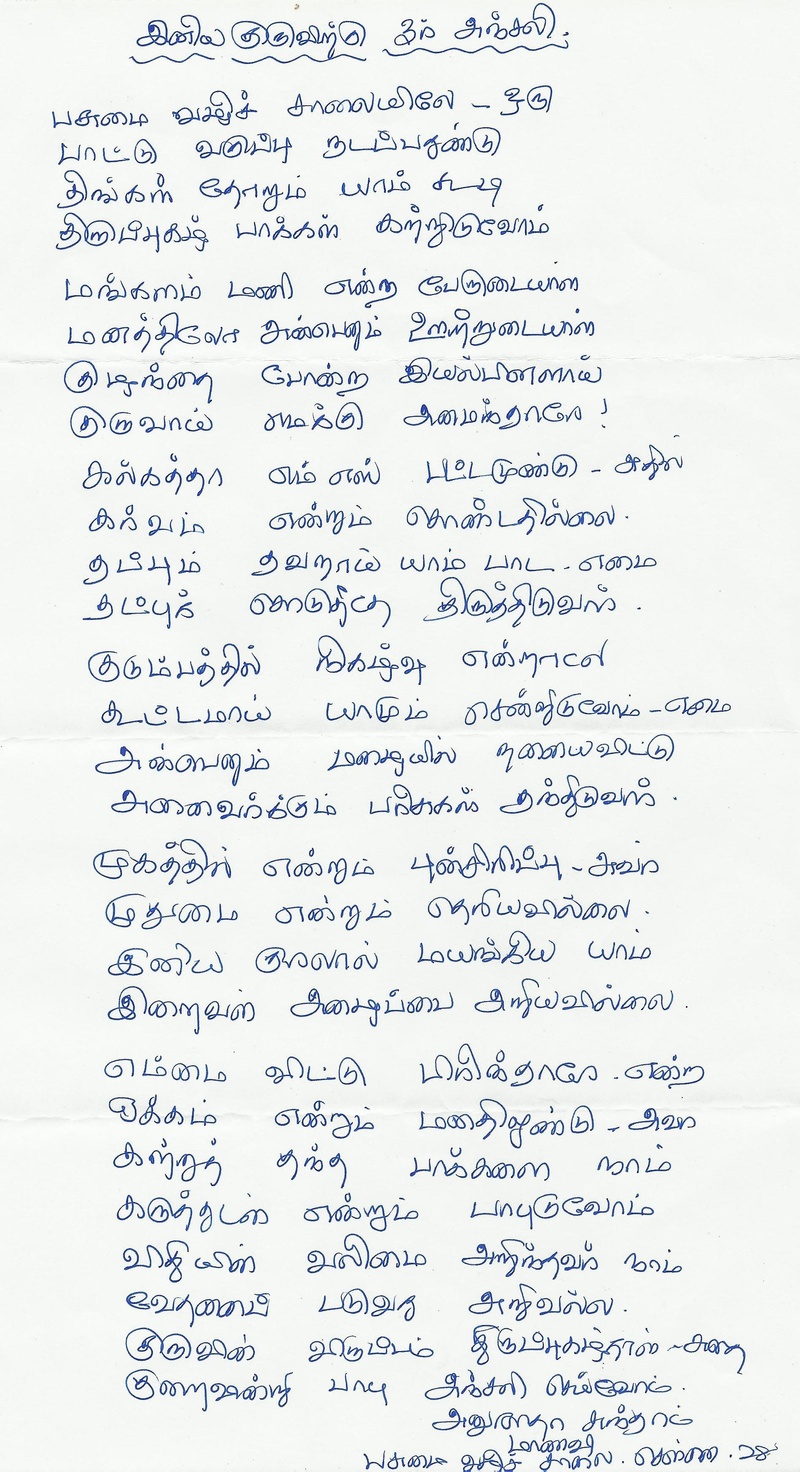 இனிய குருவிற்கு ஓர் அஞ்சலி.
பசுமை வழிச் சாலையிலே - ஒரு
பாட்டு வகுப்பு நடப்பதுண்டு
திங்கள் தோறும் யாம் கூடி
திருப்புகழ் பாக்கள் கற்றிடுவோம்
மங்களம் மணி என்ற பேருடையாள்
மனத்திலே அன்பெனும் ஊற்றுடையாள்
குழந்தை போன்ற இயல்பினளாய்
குருவாய் எமக்கு அமைந்தாளே!
கல்கத்தா எம் எஸ் பட்டமுண்டு - அதில்
கர்வம் என்றும் கொண்டதில்லை.
தப்பும் தவறாய் யாம் பாட - எமை
தட்டிக் கொடுத்தே திருத்திடுவாள்.
குடும்பத்தில் நிகழ்வு என்றாலே
கூட்டமாய் யாமும் சென்றிடுவோம் - எமை
அன்பெனும் மழையில் நனையவிட்டு
அனைவர்க்கும் பரிசுகள் தந்திடுவாள்.
முகத்தில் என்றும் புன்சிரிப்பு - அவள்
முதுமை என்றும் தெரியவில்லை.
இனிய குரலால் மயங்கிய யாம்
இறைவன் அழைப்பை அறியவில்லை.
எம்மை விட்டு பிரிந்தாளே - என்ற
ஏக்கம் என்றும் மனதிலுண்டு - அவள்
கற்றுத் தந்த பாக்களை நாம்
கருத்துடன் என்றும் பாடிடுவோம்
விதியின் வலிமை அறிந்தவர் நாம்
வேதனைப் படுவது அறிவல்ல.
குருவின் விருப்பம் திருப்புகழ்தான் - அதை
குறைவின்றி பாடி அஞ்சலி செய்வோம்.
அனுராதா சுந்தரம்
மாணவி
பசுமை வழிச் சாலை. சென்னை. 28